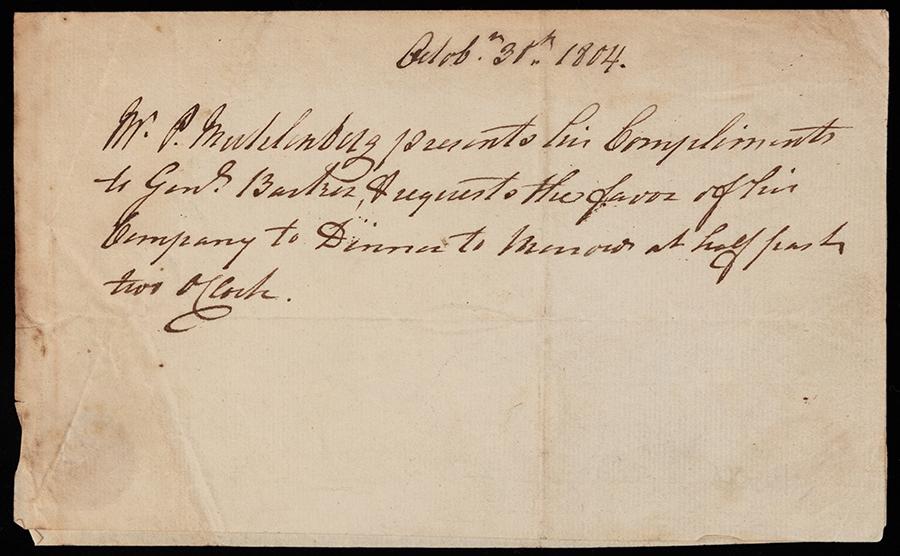 Octobr. 30th. 1804.
Mr. P. Muhlenberg presents his Compliments
to Genl. Barker, & requests the favor of his
Company to Dinner to Morrow at half past
two OClock.